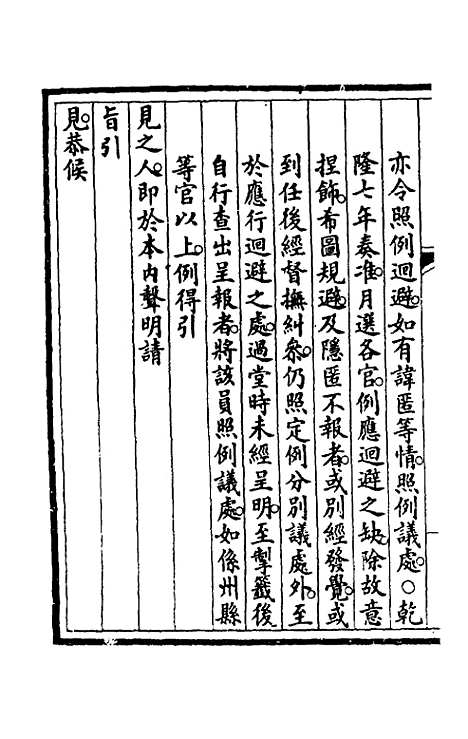 亦令照例迴避。如有諱匿等情。照例議處。○乾
隆七年奏准。月選各官。例應迴避之缺。除故意
捏飾。希圖規避。及隱匿不報者。或別經發覺。或
到任後經督撫糾叅。仍照定例分別議處外。至
於應行迴避之處。過堂時未經呈明。至掣籤後
自行查出呈報者。將該員照例議處。如係州縣
等官以上。例得引
見之人。即於本內聲明請
旨引
見。恭候